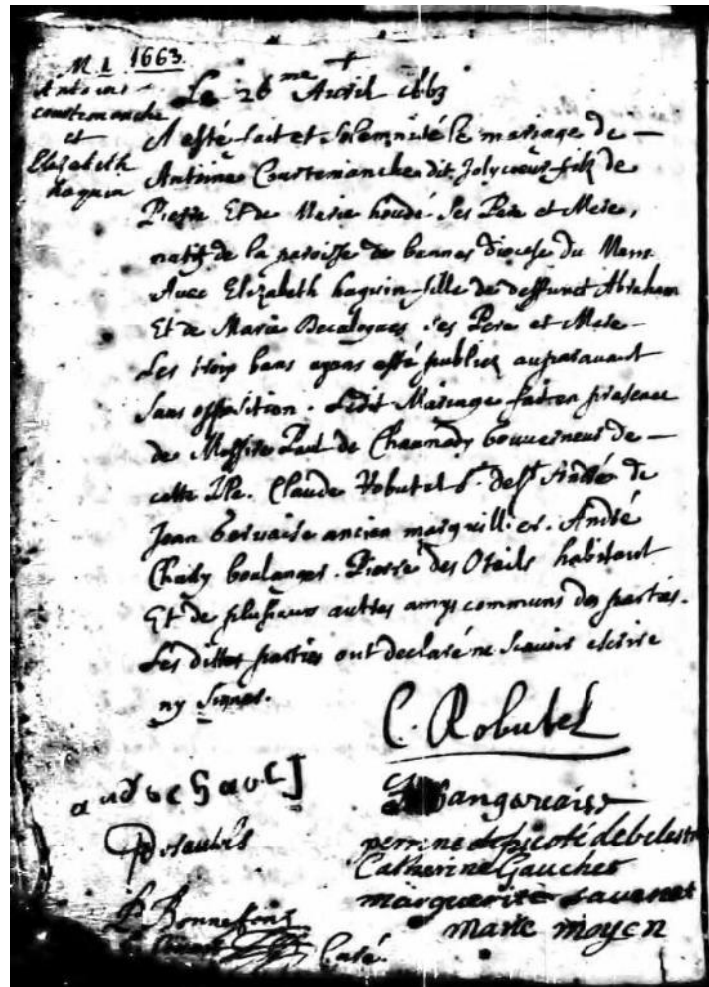 M 1 1663
Antoine
courtemanche
et
Elizabeth
haquin
Le 26me Avril 1663
A esté fait et solemnisé le mariage de —
Antoine Courtemanche dit Jolycoeur fils de
Pierre Et de Marie houdé Ses Pere et Mere,
natif de la paroisse de bannes diocese du Mans
Avec Elizabeth haquin fille de deffunct Abraham
Et de Marie Decaloques ses Pere et Mere —
Les trois bans ayans esté publiez auparavant
Sans opposition. Ledit Mariage fait en presence
de Messire Paul de Chaumedy Gouverneur de —
cette Isle. Claude Robutel Sr. de St André de
Jean Gervaise ancien marguillier. André
Charly boulanger. Pierre des Oteils habitant
Et de plusieurs autres amys communs des parties.
Les dittes parties ont declaré ne scavoir escrire
ny signer.
C. Robutel
Jangervaise
perrine picoté debelestre
Catherine Gaucher
marguerite
marie moyen
P. Bonnefons
Curé.